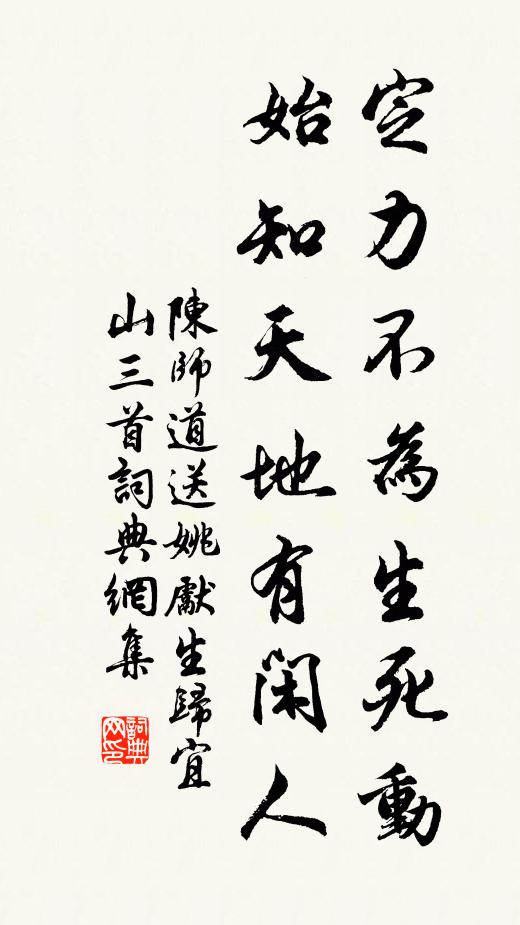 定力不為生死動
始知天地有閑人
陳師道送姚獻生歸宜
山三首詞典網集
詞典
网印